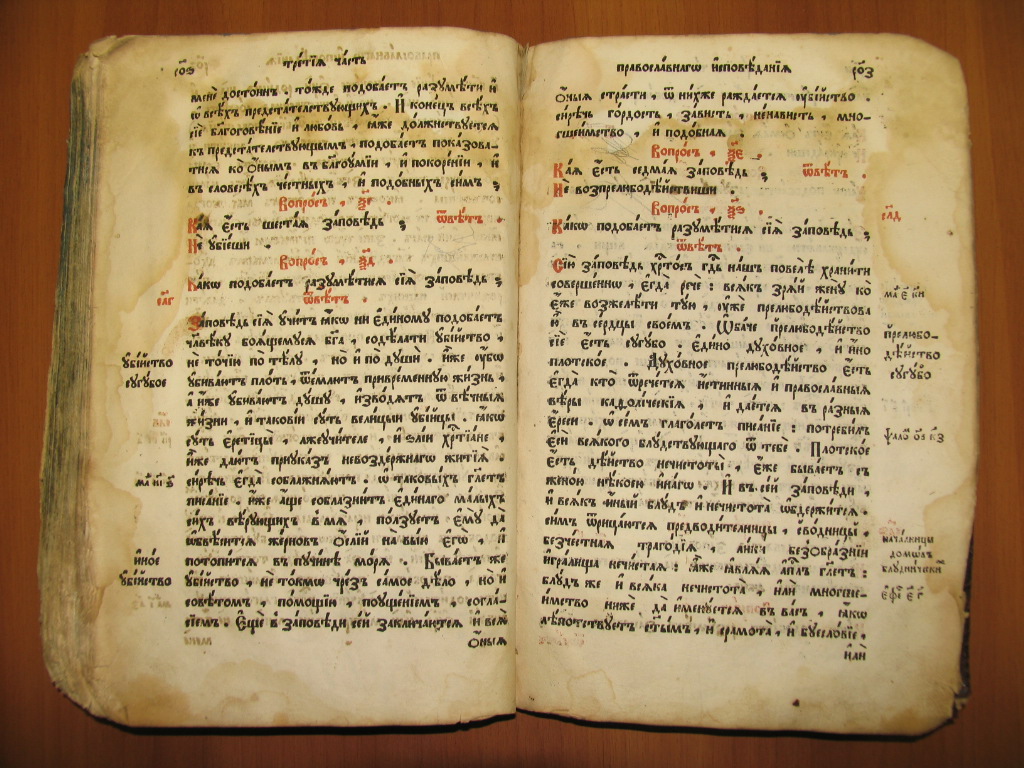 тре́тїѧ ча́сть
рѻ҃ѕ
менѐ досто́инъ . то́жде подоба́етъ разꙋмѣ́ти и҆
ѡ҆ всѣ́хъ предста́телствꙋющихъ . И҆ коне́цъ всѣ́хъ
сїѐ бл҃гогове́нїе и҆ любо́вь , ꙗ҆́же до́лжнствꙋетсѧ
къ предста́телствꙋющымъ , подоба́етъ показова́-
тисѧ ко ѻ҆́нымъ въ бл҃гоꙋ́мїи , и҆ покоре́нїи , и҆
въ словесѣ́хъ че́стныхъ , и҆ подо́бныхъ си́мъ ;
Вопро́съ , ѯ҃г .
Ка́ѧ є҆́сть шеста́ѧ за́повѣдь ; ѿвѣ́тъ .
Не ᲂу҆бїе́ши .
Вопро́съ , ѯ҃д .
Ка́кѡ подоба́етъ разꙋмѣ́тисѧ сїѧ̀ за́повѣдь ;
ѿвѣ́тъ .
За́повѣдь сїѧ̀ ᲂу҆чи́тъ ꙗ҆́кѡ ни є҆ди́номꙋ подоба́етъ
чл҃вѣ́кꙋ боѧ́щемꙋсѧ бг҃а , содѣ́лати ᲂу҆бі́йство ,
не то́чїю по тѣ́лꙋ , но и҆ по дꙋшѝ . и҆́же ᲂу҆́бѡ
ᲂу҆бива́ютъ пло́ть , ѿе́млютъ привре́меннꙋю жи́знь ,
а҆ и҆̀же ᲂу҆бива́ютъ дꙋ́шꙋ , и҆зво́дѧтъ ѿ вѣ́чныѧ
жи́зни , и҆ такові́и сꙋ́ть вели́цыи ᲂу҆бі́йцы . ꙗ҆́кѡ
сꙋ́ть є҆рети́цы , лжеꙋчи́теле , и҆ ѕлі́и хр҃тїа́не ,
и҆̀же даю́тъ прика́зъ невозде́ржнагѡ житїѧ̀ .
си́рѣчь є҆гда̀ соблажнѧ́ютъ . ѡ҆ таковы́хъ гл҃етъ
писа́нїе . и҆́же а҆́ще соблазни́тъ є҆ди́наго ма́лыхъ
си́хъ вѣ́рꙋющихъ в мѧ̀ , по́лзꙋетъ є҆мꙋ̀ да̀
ѡ҆бвѣ́ситсѧ же́рновъ ѻ҆се́лїй на вы́и є҆гѡ̀ , и҆
пото́питсѧ въ пꙋчи́нѣ мо́рѧ . Быва́етъ же
ᲂу҆бі́йство , не то́кмѡ чре́зъ са́мое дѣ́ло , но и҆
совѣ́томъ , по́мощїю , поꙋще́нїемъ , согла́-
сїемъ . Є҆щѐ в за́повѣди се́й заключа́ютсѧ и҆ всѧ̀
ѻ҆́ныѧ
сл҃г
ᲂу҆бі́йство
сꙋгꙋ́бое
ма҃ и҃і
и҆но́е
ᲂу҆бі́йство
правосла́внагѡ и҆сповѣ́данїѧ
рѻ҃з
ѻ҆́ныѧ стра́сти , ѿ ни́хже ражда́етсѧ ᲂу҆бі́йство .
си́рѣчь го́рдость , за́висть , не́нависть , мно-
госшеи́мство , и҆ подо́бнаѧ .
Вопро́съ , ѯ҃є .
Ка́ѧ є҆́сть седма́ѧ за́повѣдь ; ѿвѣ́тъ .
Не возпрелюбодѣ́йствиши .
Вопро́съ , ѯ҃ѕ .
Ка́кѡ подоба́етъ разꙋмѣ́тисѧ сїѧ̀ за́повѣдь ;
ѿвѣ́тъ .
Сїю̀ за́повѣдь хр҃то́съ гд҃ь на́шъ повелѣ̀ храни́ти
соверше́ннѡ , є҆гда̀ речѐ : всѧ́къ зрѧ́й женꙋ̀ ко
є҆́же возжелѣ́ти тꙋ́ю , ᲂу҆жѐ прелюбодѣ́йствова
ю҆̀ въ се́рдцы свое́мъ . Ѻ҆ба́че прелюбодѣ́йство
сїѐ є҆́сть сꙋгꙋ́бо . є҆ди́но дꙋхо́вное , и҆ и҆́но
пло́тское . Дꙋхо́вное прелюбодѣ́йство є҆́сть
є҆гда̀ кто̀ ѿрече́тсѧ и҆́стинныѧ и҆ правосла́вныѧ
вѣ́ры каѳоли́ческїѧ , и҆ дае́тсѧ въ ра́зныѧ
є҆́реси , ѡ҆ се́мъ глаго́летъ писа́нїе : потреби́лъ
є҆сѝ всѧ́кого блꙋ́дствꙋющаго ѿ тебѐ . Пло́тское
є҆́сть дѣ́йство нечистоты̀ , є҆́же быва́етъ съ
жено́ю нѣ́коею и҆на́гѡ . И҆ въ се́й за́повѣди ,
и҆ всѧ́къ и҆́ный блꙋ́дъ и҆ нечистота̀ ѡ҆бде́ржитсѧ .
си́мъ ѿрица́ютсѧ предводи́телницы , сво́дницы ,
безче́стнаѧ траго́дїѧ , ли́ки безо҆бра́знїи
и҆гра́лища нечи́стаѧ : ꙗ҆́же ꙗ҆влѧ́ѧ а҆п҃лъ гл҃етъ :
блꙋ́дъ же и҆ всѧ́ка нечистота̀ , и҆лѝ многоиме́-
и҆мство нижѐ да и҆менꙋ́етсѧ въ ва́съ , ꙗ҆́кѡ
лѣ́потствꙋетъ ст҃ы́мъ , и҆ срамота̀ , и҆ бꙋесло́вїе ,
и҆лѝ
сл҃д
ма҃ є҃ ки
прелюбо-
дѣ́йство
сꙋгꙋ́бо
ѱало̀ о҃в к҃з
нача́лницы
домѡ́въ
блꙋдни́ческихъ
є҆фе҃ є҃ г҃